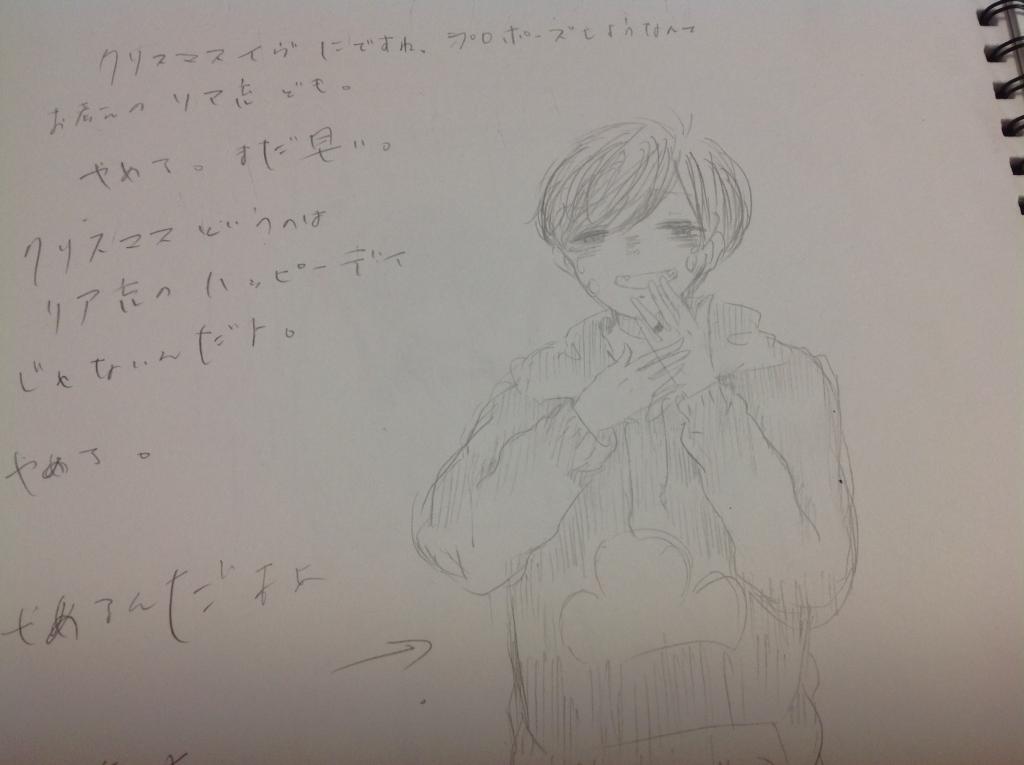 クリスマスイヴにですね、プロポーズしようなんて
お考えのリア充ども。
やめて。まだ早い。
クリスマスというのは
リア充のハッピーデイ
じゃないんだよ。
やめろ。
やめるんだ